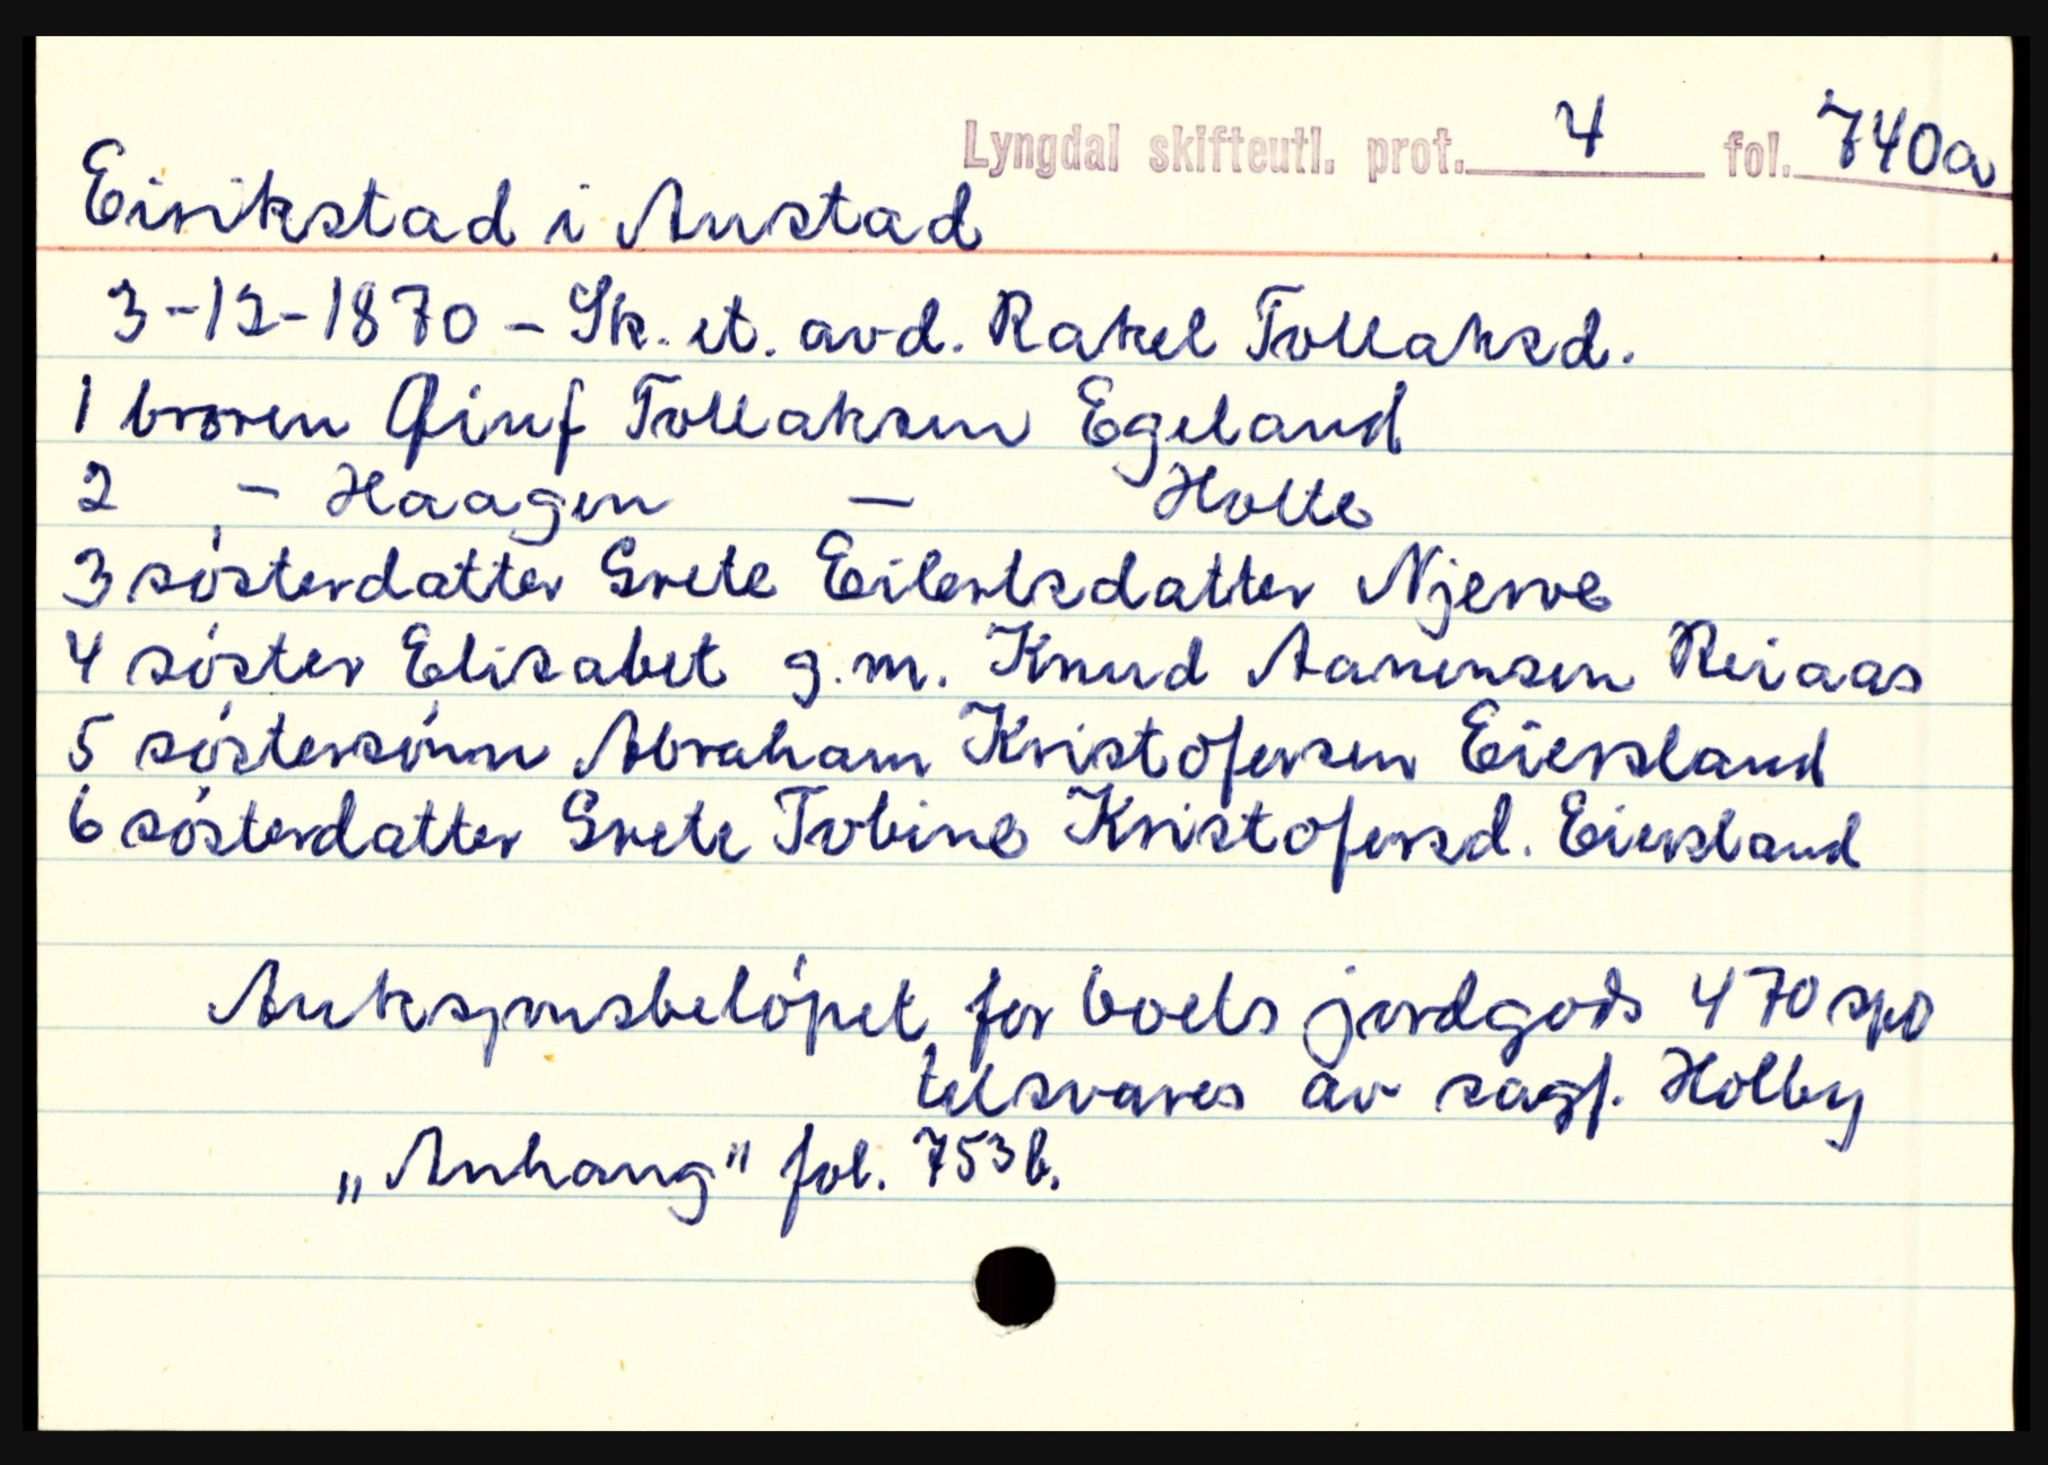 Lyngdal skifteutl. prot. 4 fol. 740a
Eirikstad i Austad
3-12-1870 - Sk. et. avd. Rakel Tollaksd.
1 broren Tollaksen Egeland
2 - Haagen — Holte
3 søsterdatter Grete Eilertsdatter Njerve
4 søster Elisabet g.m. Knud Aanensen Reiaas
5 søstersønn Abraham Kristofersen Eiersland
6 søsterdatter Grete Tobine Kristofersd. Eiersland
Auksjonsbeløpet for boets jordgods 470 spd
tilsvares av sagf. Holby
„Anhang" fol. 753b.